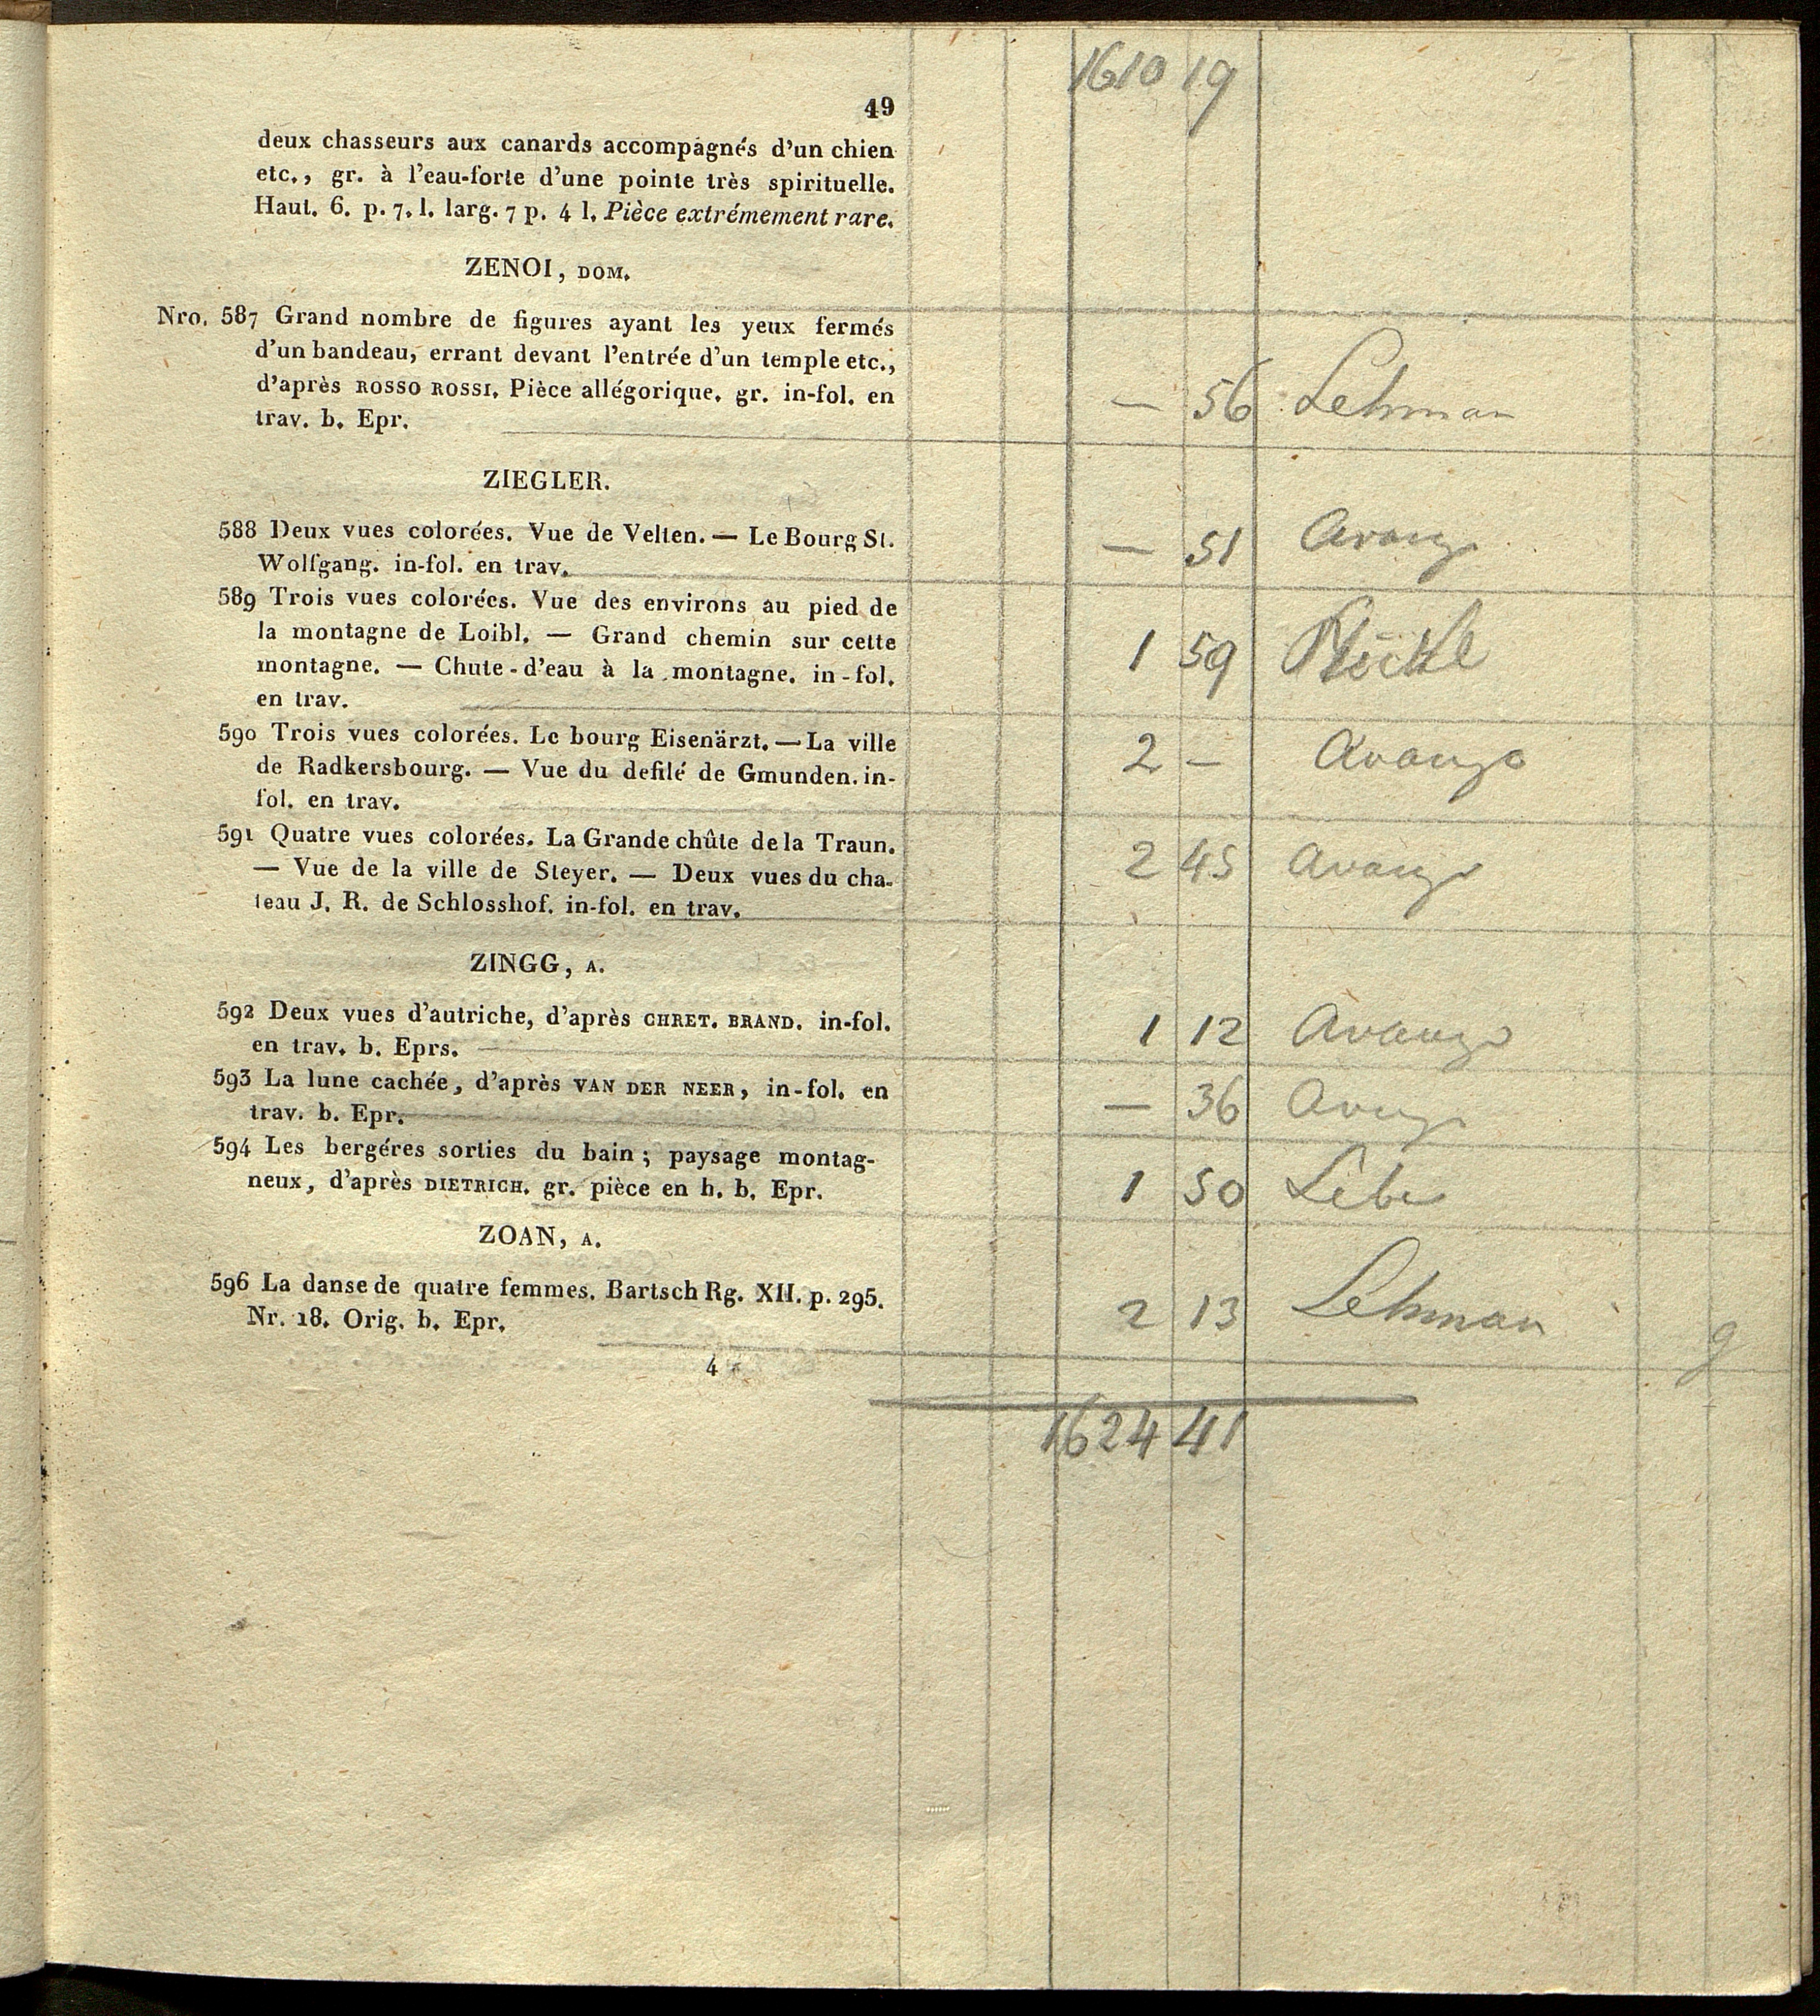 1610 19
49
deux chasseurs aux canards accompagnés d'un chien
etc., gr. à l'eau-forte d'une pointe très spirituelle.
Haut. 6. p. 7. l. larg. 7 p. 4 l. Pièce extrémement rare.
ZENOI, DOM.
Nro. 587 Grand nombre de figures ayant les yeux fermés
d'un bandeau, errant devant l'entrée d'un temple etc.,
d'après ROSSO ROSSI. Pièce allégorique. gr. in-fol. en
trav. b. Epr.
— 56 Lehman
ZIEGLER.
588 Deux vues colorées. Vue de Velten. — Le Bourg St.
Wolfgang. in-fol. en trav.
— 51 Avanzo
589 Trois vues colorées. Vue des environs au pied de
la montagne de Loibl. — Grand chemin sur cette
montagne. — Chute-d'eau à la montagne. in-fol.
en trav.
1 59
590 Trois vues colorées. Le bourg Eisenärzt. — La ville
de Radkersbourg. — Vue du defilé de Gmunden. in-
fol. en trav.
2 — Avanzo
591 Quatre vues colorées. La Grande chûte de la Traun.
— Vue de la ville de Steyer. — Deux vues du cha-
teau J. R. de Schlosshof. in-fol. en trav.
2 45 Avanzo
ZINGG, A.
592 Deux vues d'autriche, d'après CHRET. BRAND. in-fol.
en trav. b. Eprs.
1 12 Avanzo
593 La lune cachée, d'après VAN DER NEER, in-fol. en
trav. b. Epr.
— 36 Avanzo
594 Les bergéres sorties du bain; paysage montag-
neux, d'après DIETRICH. gr. pièce en h. b. Epr.
1 50
ZOAN, A.
596 La danse de quatre femmes. Bartsch Rg. XII. p. 295.
Nr. 18. Orig. b. Epr.
2 13 Lehman
9
4 *
1624 41